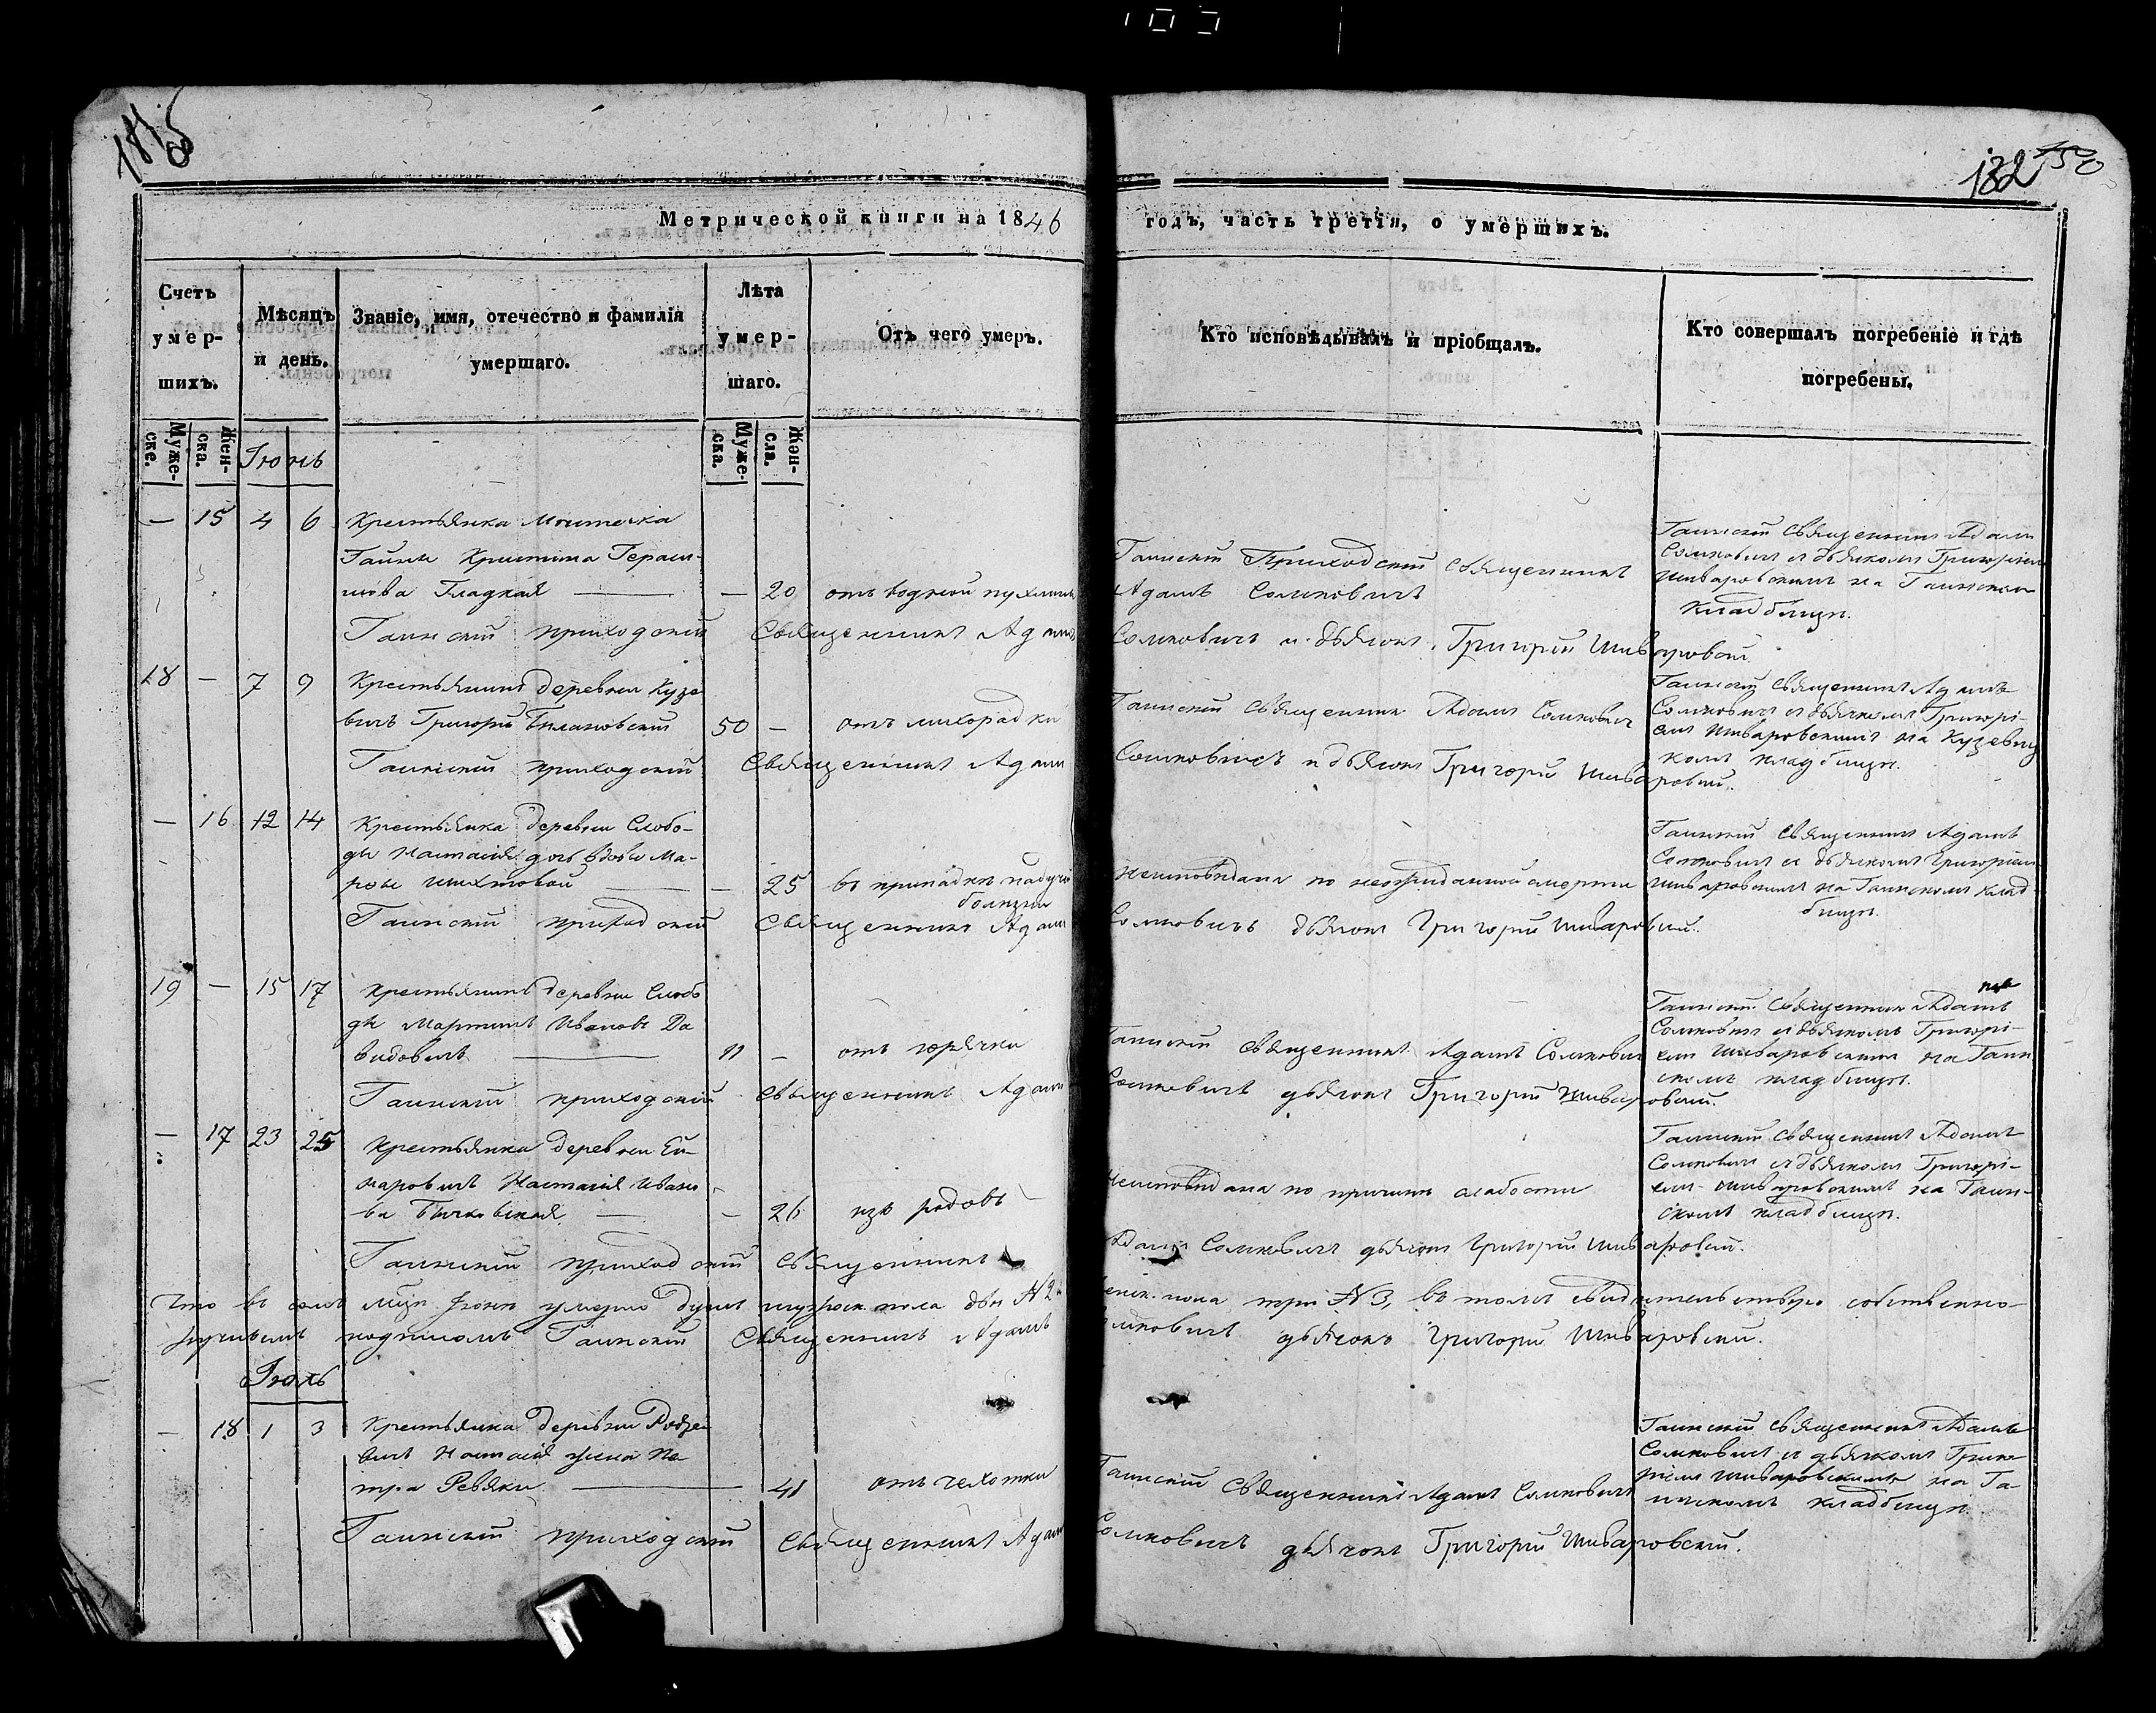 132
Метрической книги на 1846 годъ, часть третія, о умершихъ.
Счетъ умер-шихъ.
Мѣсяцъ и день.
Званіе, имя, отечество и фамилія умершаго.
Лѣта умер-шаго.
Отъ чего умеръ.
Кто исповѣдывалъ и пріобщалъ.
Кто совершалъ погребеніе и гдѣ погребены.
Муже-ске.
Жен-ска.
Муже-ска.
Жен-ска.
Іюнь
— 15 4 6 Крестьянка мѣстечка
Гайны Христина Гераси-
мова Гладкая — — 20 отъ водяной
Гаинскій Приходскій Священникъ
Адамъ Сомковичъ
Гаинскій Священникъ Адамъ
Сомковичъ съ дьячкомъ Григоріемъ
Шиваровскимъ на Гаинскомъ
кладбищѣ.
Гаинскій приходскій Священникъ Адамъ Сомковичъ и дьячокъ Григорій Шиваровскій
18 — 7 9 Крестьянинъ деревни Кузе
вичъ Григорій 50 — отъ лихорадки
Гаинскій Священникъ Адамъ Сомковичъ
Гаинскій Священникъ Адамъ
Сомковичъ съ дьячкомъ Григорі-
емъ Шиваровскимъ на Кузевиц
комъ кладбищѣ.
Гаинскій приходскій Священникъ Адамъ Сомковичъ и дьячокъ Григорій Шиваровскій.
— 16 12 14 Крестьянка деревни Слобо-
ды Настасія дочь вдовы Ма-
ры — — 25 въ припадкѣ падучей
болѣзни
Неисповѣдана по неожиданной смерти
Гаинскій Священникъ Адамъ
Сомковичъ съ дьячкомъ Григоріемъ
Шиваровскимъ на Гаинскомъ клад
бищѣ.
Гаинскій приходскій Священникъ Адамъ Сомковичъ дьячокъ Григорій Шиваровскій.
19 — 15 17 Крестьянинъ деревни Слобо
ды Мартинъ Ивановъ Да
видовичъ — 11 — отъ горячки
Гаинскій Священникъ Адамъ Сомковичъ
Гаинскій Священникъ Адамъ
Сомковичъ съ дьячкомъ Григорі-
емъ Шиваровскимъ на Гаин
скомъ кладбищѣ.
Гаинскій приходскій Священникъ Адамъ Сомковичъ дьячокъ Григорій Шиваровскій.
— 17 23 25 Крестьянка деревни Ей-
наровичъ Настасія Ивано
ва — — 26 изъ родовъ
Неисповѣдана по причинѣ слабости
Гаинскій Священникъ Адамъ
Сомковичъ съ дьячкомъ Григорі-
емъ Шиваровскимъ на Гаин-
скомъ кладбищѣ.
Гаинскій приходскій Священникъ Адамъ Сомковичъ дьячокъ Григорій Шиваровскій.
Что въ семъ мцѣ Іюнѣ умерло душъ мужеск. пола двѣ №2 женск. пола три №3, въ томъ свидѣтельствую собственно-
ручнымъ подписомъ Гаинскій Священникъ Адамъ Сомковичъ дьячокъ Григорій Шиваровскій.
Іюль
— 18 1 3 Крестьянка деревни Родзе
вичъ Настасія жена Пе
тра Ревяки — 41 отъ чехотки
Гаинскій Священникъ Адамъ Сомковичъ
Гаинскій Священникъ Адамъ
Сомковичъ съ дьячкомъ Григо
ріемъ Шиваровскимъ на Га-
инскомъ кладбищѣ.
Гаинскій приходскій Священникъ Адамъ Сомковичъ дьячокъ Григорій Шиваровскій.